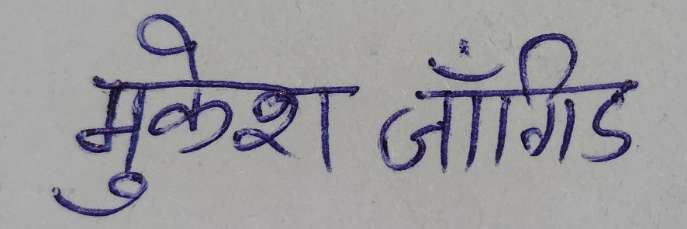 मुकेश जाँगिड